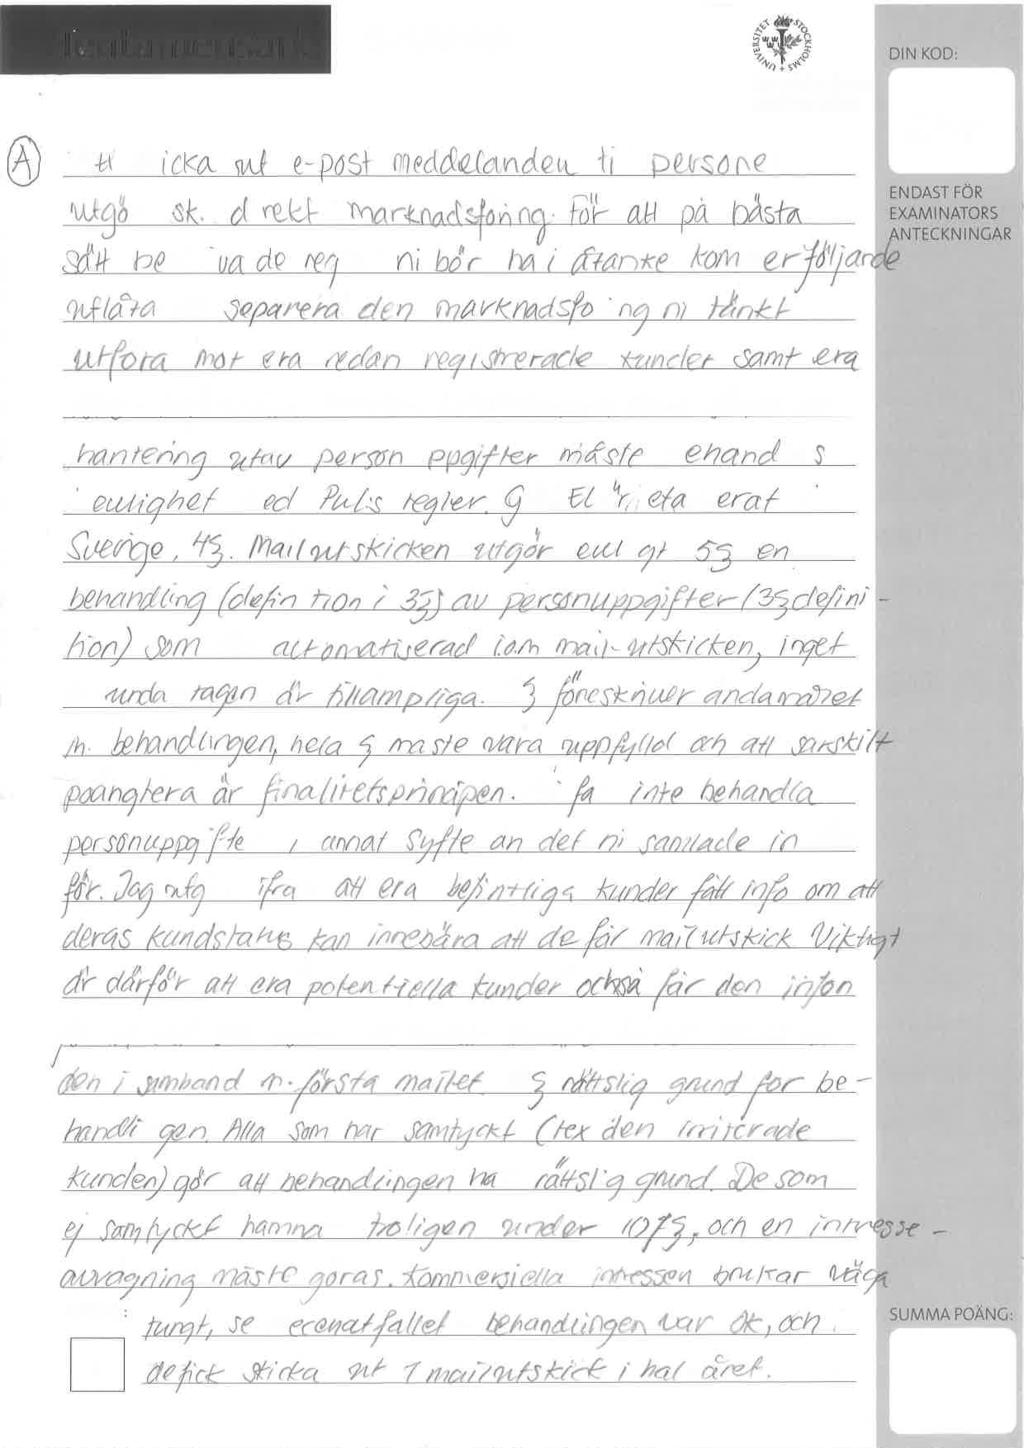 DIN KOD:
UNIVERSITET STOCKHOLMS
ENDAST FÖR
EXAMINATORS
ANTECKNINGAR
A
icka ut e-post meddelanden ti persone
utgö sk. d rekt marknadsföring. För att på bästa
sätt be va de reg ni bör ha i åtanke kom er följande
utlåta separera den marknadsfö ng ni tänkt
utföra mot era redan registrerade kunder samt era
hantering utav person ppgifter måste ehand s
enlighet ed Pul:s regler. erat
Sverige, 4§. Mailutskicken utgör enl gt 5§ en
behandling (defin tion i 3§) av personuppgifter (3§ defini-
tion) som automatiserad i.o.m mail-utskicken, inget
unda tagen är tillämpliga. § föreskriver ändamålet
m. behandlingen, hela § måste vara uppfylld och att särskilt
poängtera är finalitetsprincipen. få inte behandla
personuppg fte i annat syfte än det ni samlade in
för. Jag utg ifrå att era befintliga kunder fått info om att
deras kundstatus kan innebära att de får mailutskick Viktigt
är därför att era potentiella kunder också får den infon
den i samband m. första mailet § rättslig grund för be-
handli gen. Alla som har samtyckt (tex den irriterade
kunden) gör att behandlingen ha rättsl g grund. De som
ej samtyckt hamna troligen under 10f§, och en intresse-
avvägning måste göras. Kommersiella intressen brukar väga
tungt, se behandlingen var ok, och
de fick skicka ut 1 mailutskick i hal året.
SUMMA POÄNG: